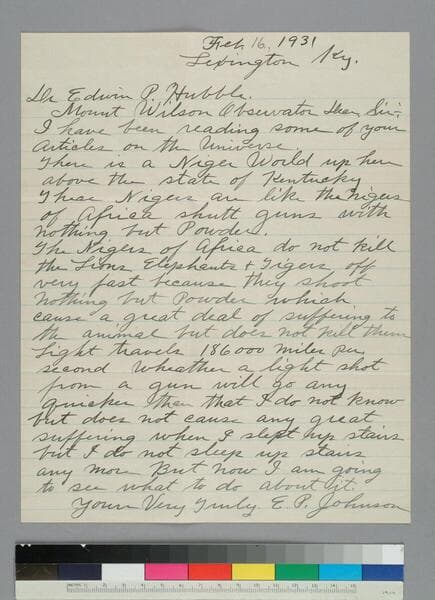 Feb 16, 1931
Lexington Ky.
Dr Edwin P. Hubble.
Mount Wilson Observator Dear Sir.
I have been reading some of your
articles on the Universe
There is a Niger World up here
above the state of Kentucky
These Nigers are like the Nigers
of Africa shutt guns with
nothing but Powder.
The Nigers of Africa do not kill
the Lions Elephants & Tigers off
very fast because they shoot
nothing but Powder which
cause a great deal of suffering to
the animal but does not kill them
Light travels 186000 miles per
second Wheather a light shot
from a gun will go any
quicker then that I do not know
but does not cause any great
suffering when I slept up stairs
but I do not sleep up stairs
any more But now I am going
to see what to do about it.
Yours Very Truly E. P. Johnson